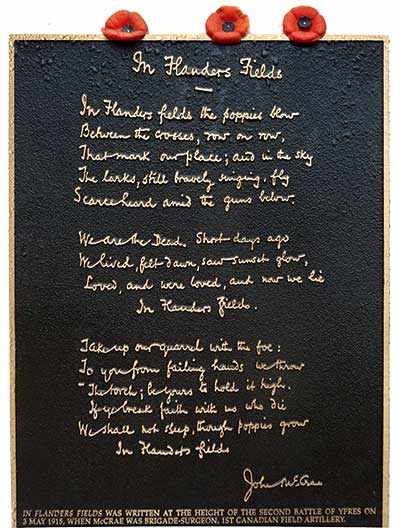 In Flanders Fields
In Flanders fields the poppies blow
Between the crosses, row on row,
That mark our place; and in the sky
The larks, still bravely singing, fly
Scarce heard amid the guns below.
We are the Dead. Short days ago
We lived, felt dawn, saw sunset glow,
Loved, and were loved, and now we lie
In Flanders fields.
Take up our quarrel with the foe:
To you from failing hands we throw
The torch; be yours to hold it high.
If ye break faith with us who die
We shall not sleep, though poppies grow
In Flanders fields
John McCrae
IN FLANDERS FIELDS WAS WRITTEN AT THE HEIGHT OF THE SECOND BATTLE OF YPRES ON
3 MAY 1915, WHEN McCRAE WAS BRIGADE-SURGEON, 1ST CANADIAN FIELD ARTILLERY.